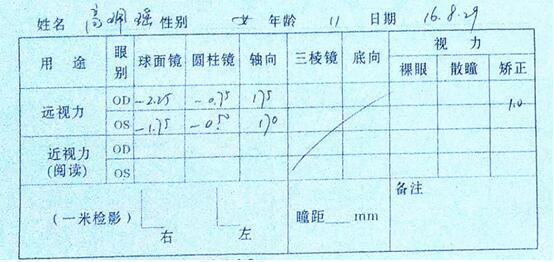 姓名 高珮瑶 性别 女 年龄 11 日期 16.8.29
用途 眼别 球面镜 圆柱镜 轴向 三棱镜 底向 视力
裸眼 散瞳 矫正
远视力 OD -2.25 -0.75 175 1.0
OS -1.75 -0.50 170
近视力 OD
(阅读) OS
(一米检影) 右 左 瞳距___mm 备注